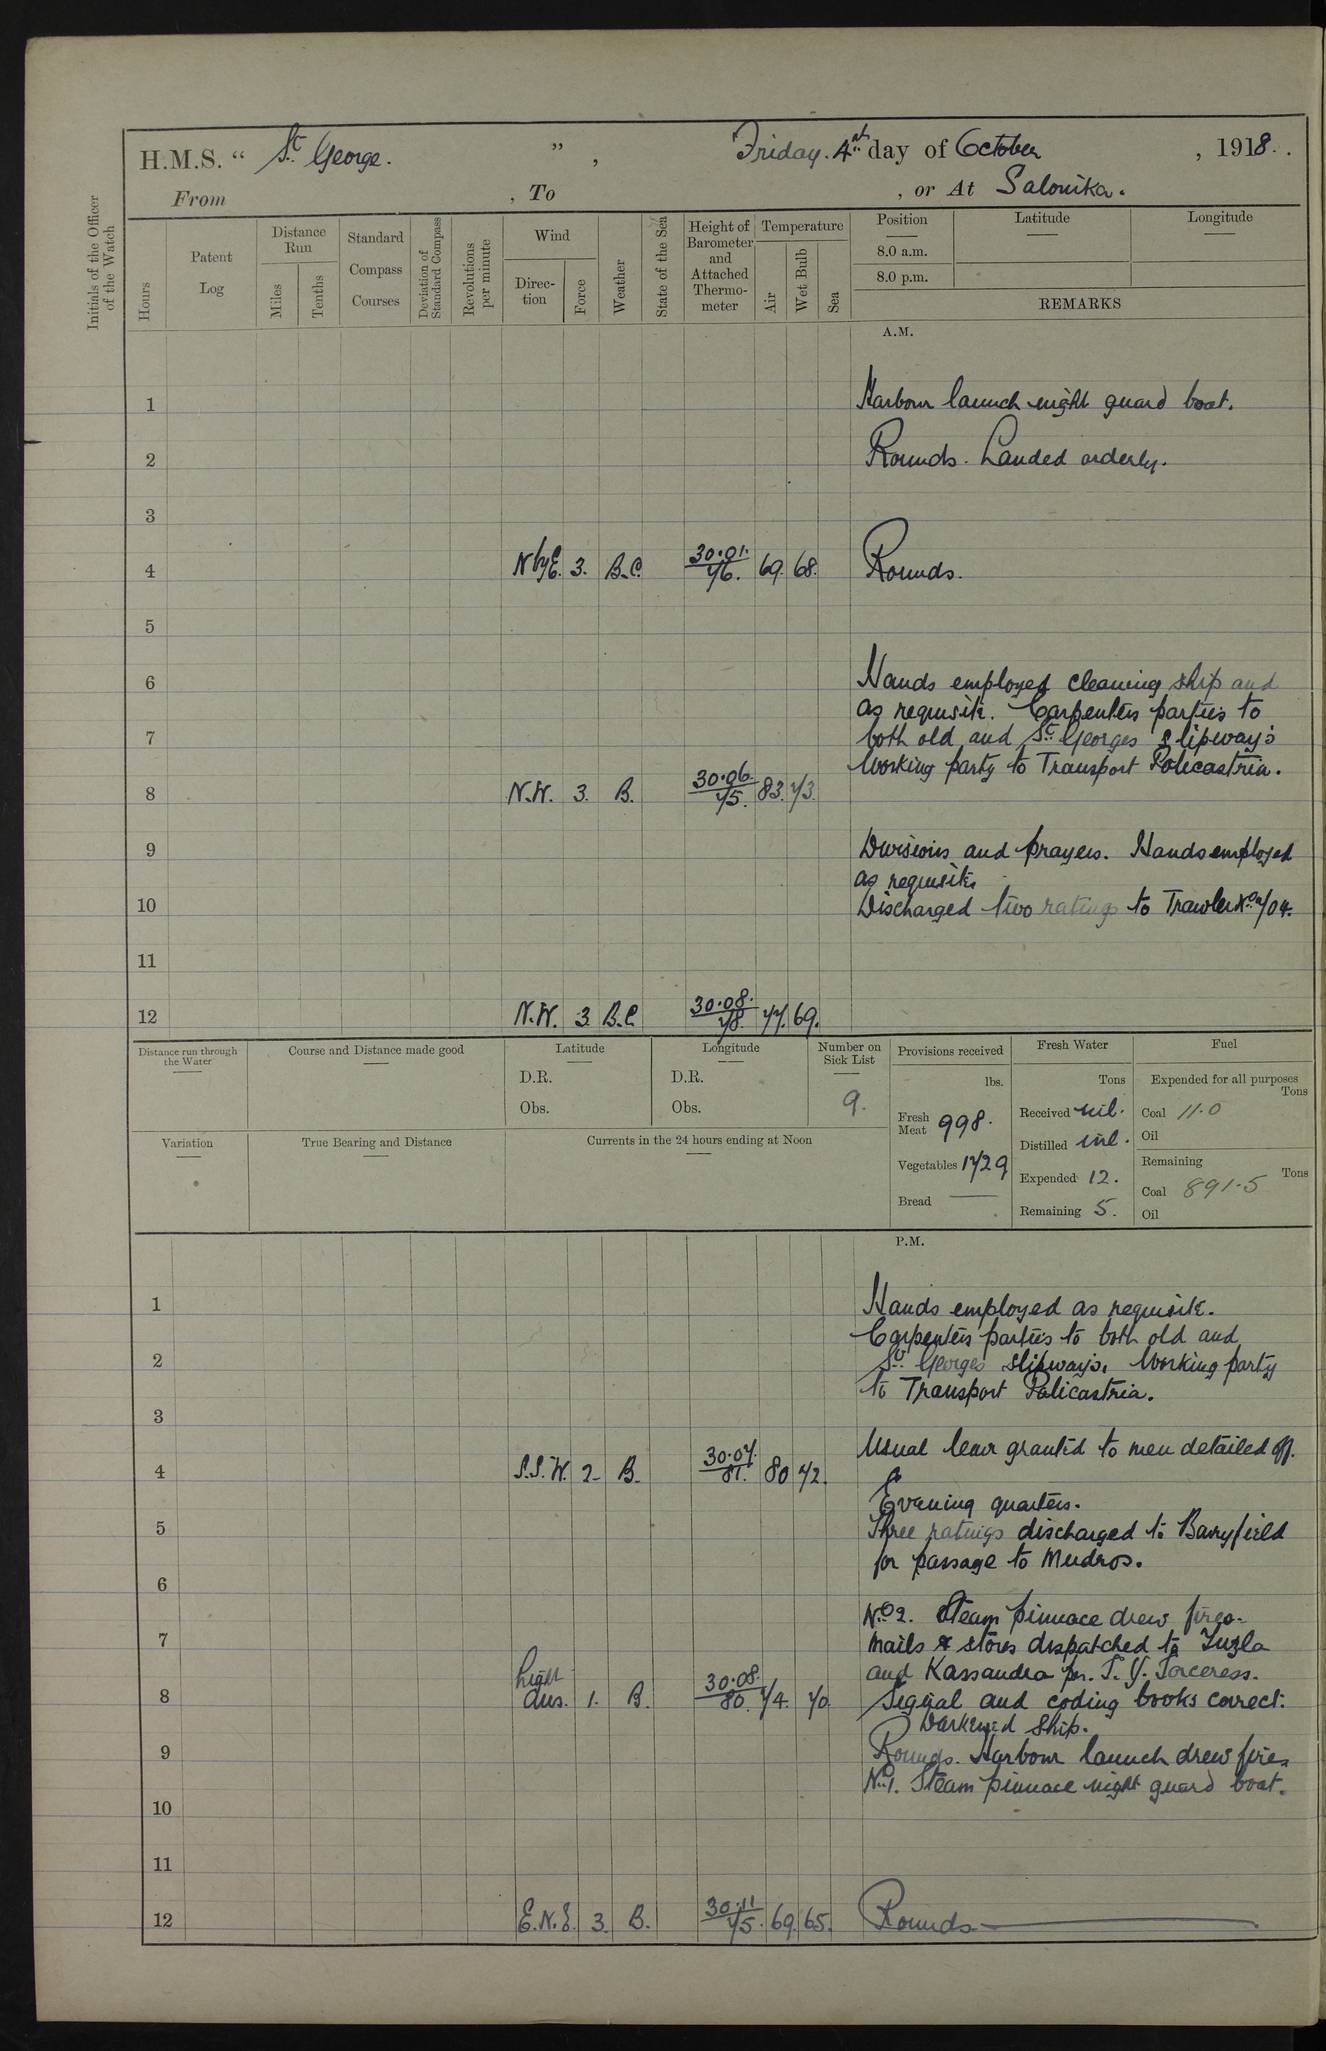 H.M.S. " St George. " , Friday. 4th day of October , 1918.
From , To , or At Salonika.
Initials of the Officer of the Watch
Hours
Patent Log
Distance Run
Miles
Tenths
Standard Compass Courses
Deviation of Standard Compass
Revolutions per minute
Wind
Direction
Force
Weather
State of the Sea
Height of Barometer and Attached Thermometer
Temperature
Air
Wet Bulb
Sea
Position
Latitude
Longitude
8.0 a.m.
8.0 p.m.
REMARKS
A.M.
1 Harbour launch night guard boat.
2 Rounds. Landed orderly.
3
4 N by E. 3. B.C. 30.01. 76. 69. 68. Rounds.
5
6 Hands employed cleaning ship and
as requisite. Carpenters parties to
7 both old and St Georges slipways
Working party to Transport Policastria.
8 N.W. 3. B. 30.06. 75. 83. 73.
9 Divisions and prayers. Hands employed
as requisite
10 Discharged two ratings to Trawler No 704.
11
12 N.W. 3. B.C. 30.08. 78. 77. 69.
Distance run through the Water
Course and Distance made good
Latitude
D.R.
Obs.
Longitude
D.R.
Obs.
Number on Sick List
9.
Provisions received
lbs.
Fresh Meat 998.
Vegetables 1729
Bread —
Fresh Water
Tons
Received nil.
Distilled nil.
Expended 12.
Remaining 5.
Fuel
Expended for all purposes
Tons
Coal 11.0
Oil
Remaining
Tons
Coal 891.5
Oil
Variation
True Bearing and Distance
Currents in the 24 hours ending at Noon
P.M.
1 Hands employed as requisite.
Carpenters parties to both old and
2 St Georges slipways. Working party
to Transport Policastria.
3
Usual leave granted to men detailed off.
4 S.S.W. 2. B. 30.07. 81. 80 72.
Evening quarters.
5 Three ratings discharged to Barryfield
for passage to Mudros.
6
No 2. Steam pinnace drew fires.
7 Mails & stores dispatched to Tuzla
and Kassandra per. S.Y. Sorceress.
8 Light airs. 1. B. 30.08. 80. 74. 70. Signal and coding books correct.
Darkened ship.
9 Rounds. Harbour launch drew fires
No 1. Steam pinnace night guard boat.
10
11
12 E.N.E. 3. B. 30.11 75. 69. 65. Rounds